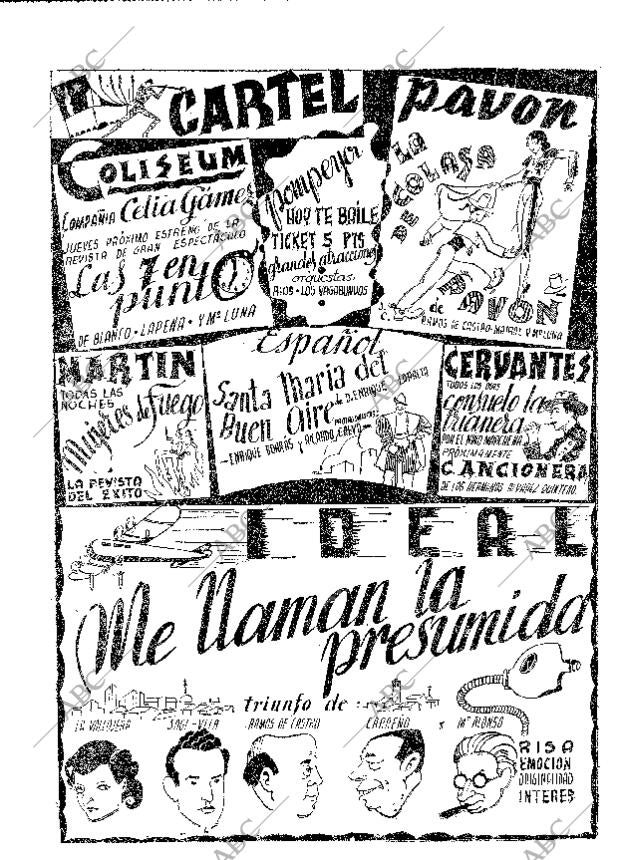 CARTEL
COLISEUM
COMPAÑIA Celia Gámez
JUEVES PROXIMO ESTRENO DE LA
REVISTA DE GRAN ESPECTACULO
Las 7 en
punto
DE BLANCO - LAPEÑA - Y Mº LUNA
Pompeya
HOY TE BAILE
TICKET 5 PTS
grandes atracciones
orquestas
LOS VAGABUNDOS
PAVON
LA
COLASA
DEL
PAVON
de
RAMOS DE CASTRO - Y Mº LUNA
MARTIN
TODAS LAS
NOCHES
Mujeres de Fuego
LA REVISTA
DEL EXITO
Español
Santa Maria del
Buen Aire
de D. ENRIQUE LARRETA
ENRIQUE BORRAS y RICARDO CALVO
CERVANTES
TODOS LOS DIAS
Consuelo la
Trianera
POR EL NIÑO MARCHENA
PROXIMAMENTE
CANCIONERA
DE LOS HERMANOS ALVAREZ QUINTERO
IDEAL
Me llaman la
presumida
triunfo de
SAGI-VELA
RAMOS DE CASTRO
CARREÑO
y
Mº ALONSO
RISA
EMOCION
ORIGINALIDAD
INTERES